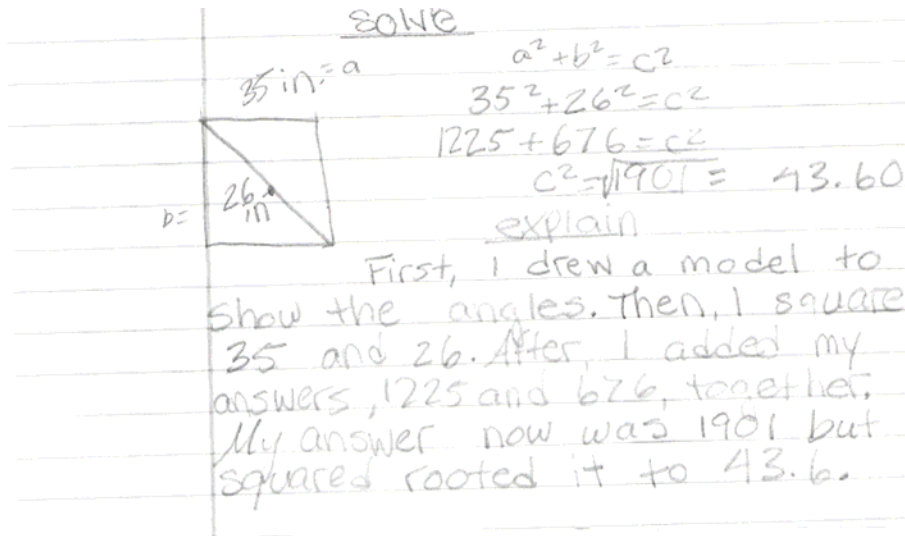 solve
35 in.= a
a²+b²=c²
35²+26²=c²
1225+676=c²
c²=√1901 = 43.60
b= 26 in
explain
First, I drew a model to
show the angles. Then, I square
35 and 26. After, I added my
answers, 1225 and 676, together.
My answer now was 1901 but
squared rooted it to 43.6.